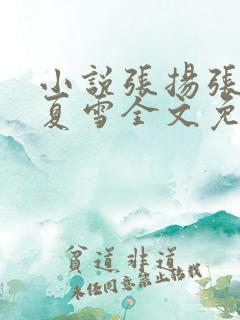 小説張揚張
夏雪全文免
貧道非道
未任同意禁止転找